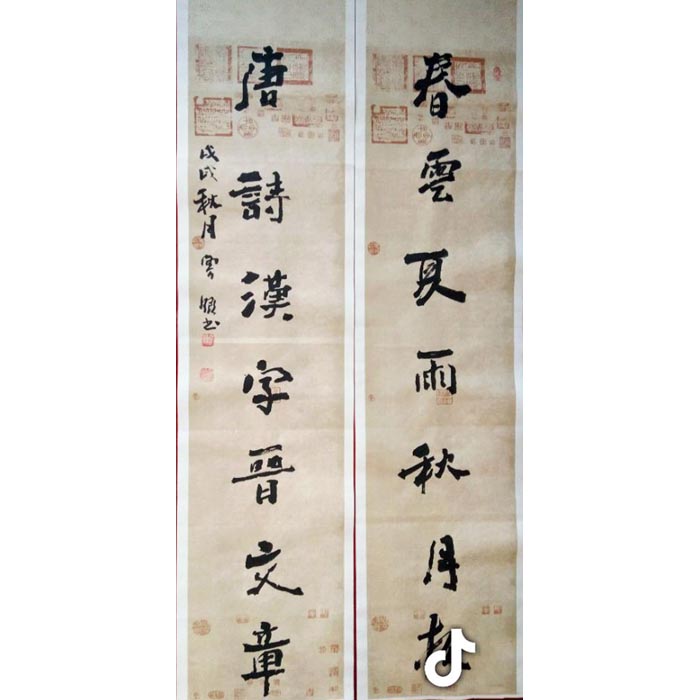 春雲夏雨秋月
唐詩漢字晉文章
戊戌秋月
书